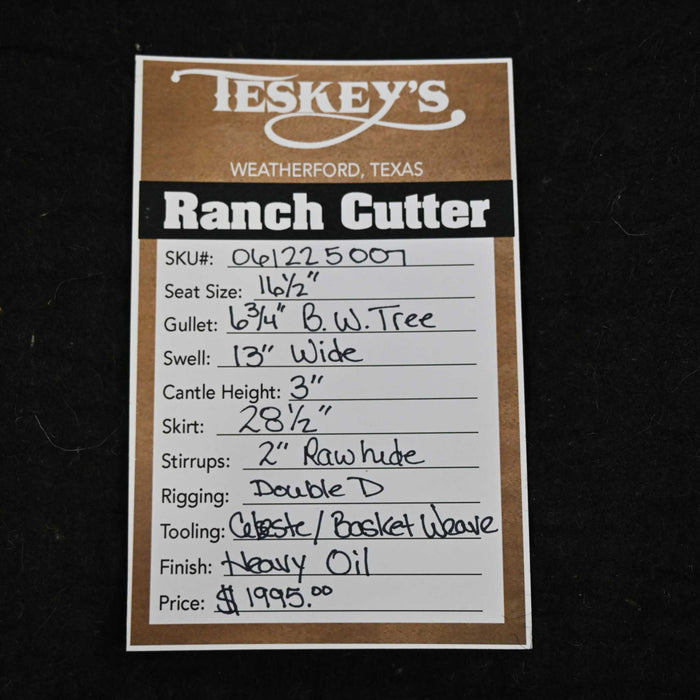 TESKEY'S
WEATHERFORD, TEXAS
Ranch Cutter
SKU#: 061225007
Seat Size: 16 1/2"
Gullet: 6 3/4" B.W. Tree
Swell: 13" Wide
Cantle Height: 3"
Skirt: 28 1/2"
Stirrups: 2" Rawhide
Rigging: Double D
Tooling: Celeste / Basket Weave
Finish: Heavy Oil
Price: $1995.00